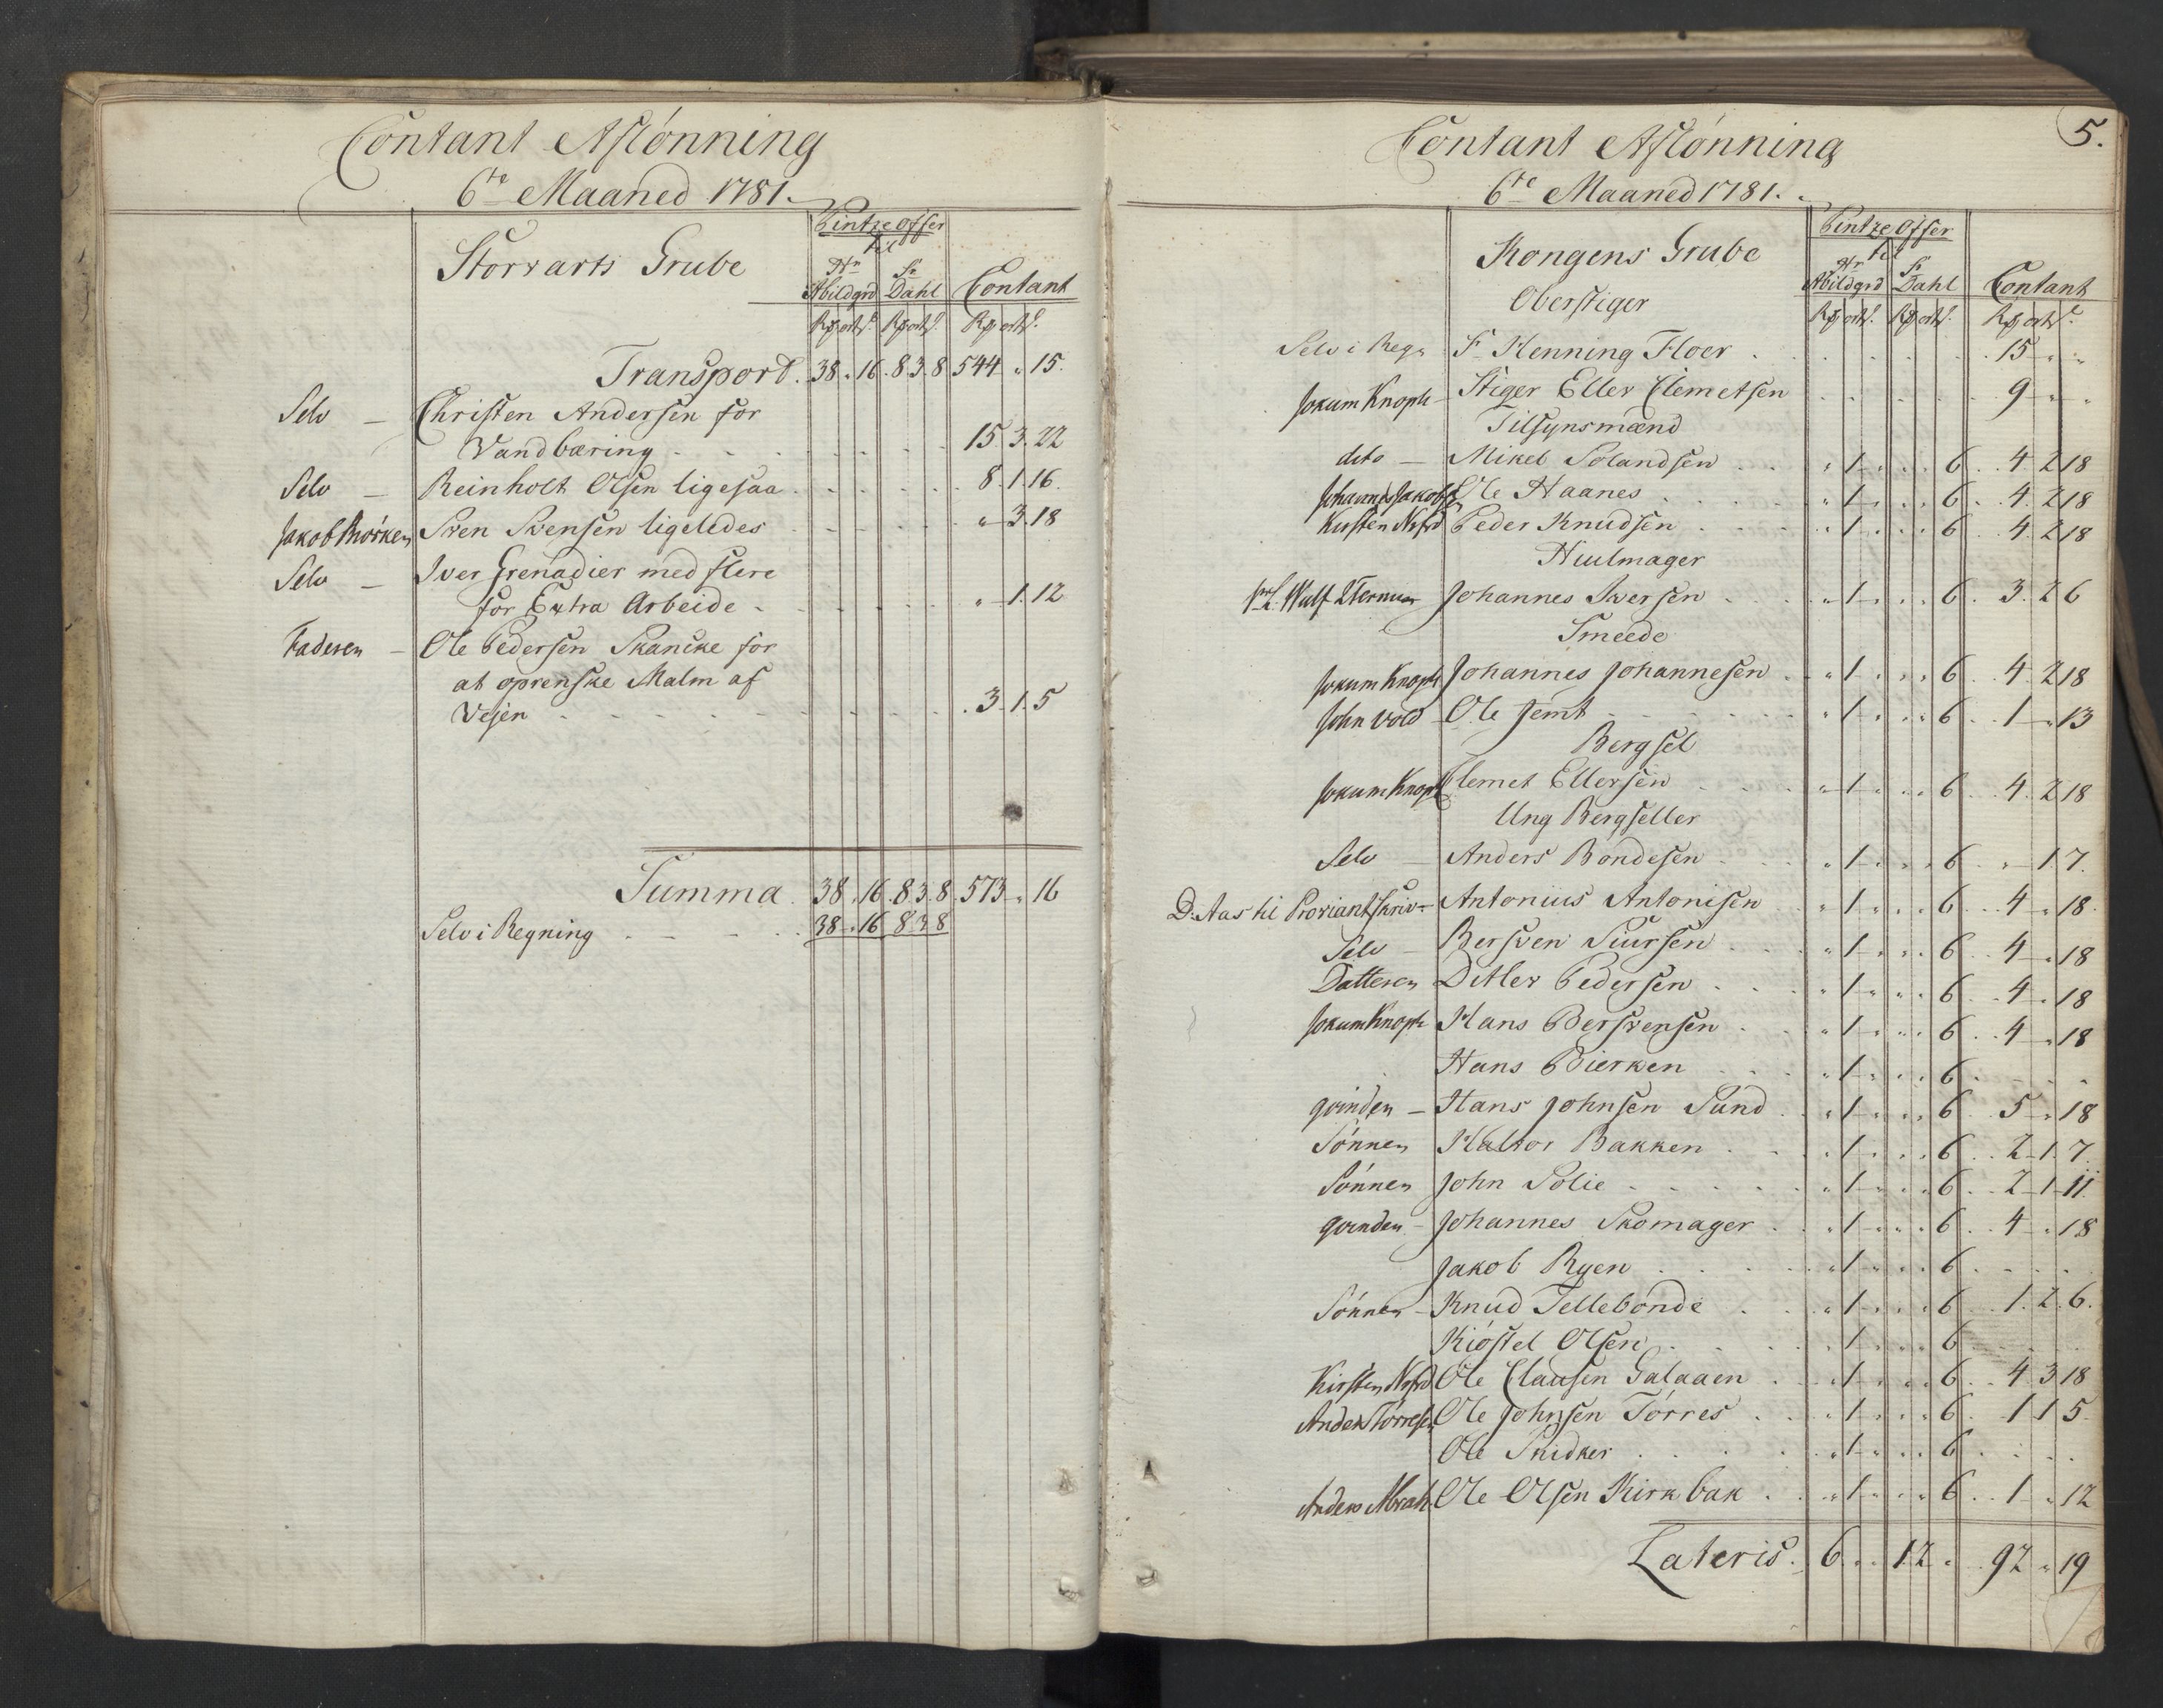 Contant Aflönning
6te Maaned 1781.
Storvarts Grube
Pintze Offer
til
Hr Abildgrd
Sr Dahl
Contant
Rd ort s. Rd ort s. Rd ort s.
Transport. 38 „ 16 . 8 3 8 544 „ 15.
Selv — Christen Andersen for
Vandbæring - - - 15 3. 22
Selv — Reinholt Olsen ligesaa 8. 1. 16.
Jakob Mörken Sven Svensen ligeledes „ 3. 18
Selv — Iver Grenadier med flere
for Extra Arbeide - „ 1. 12
Faderen — Ole Pedersen Skancke for
at oprenske Malm af
Vejen - - - 3. 1. 5
Summa. 38 „ 16 . 8. 3. 8. 573 „ 16
Selv i Regning 38 „ 16 8 3 8
5.
Contant Aflönning
6te Maaned 1781.
Kongens Grube
Oberstiger
Pintze Offer
til
Hr Abildgrd
Sr Dahl
Contant
Rd ort s. Rd ort s. Rd ort s.
Selv i Regn Sr Henning Floer 15 „ „
Jokum Knoph — Stiger Eller Clemetsen 9 „ „
Tilsynsmænd
dito — Mikel Solandsen „ 1 „ „ „ 6 4 2 18
Johannes Jakobs Ole Haanes „ 1 „ „ „ 6 4. 2 18
Kirsten Nrfrd Peder Knudsen „ 1 „ „ „ 6 4. 2 18
Hiulmager
Wulf Johannes Iversen „ 1 „ „ „ 6 3. 2 6
Smeede
Jokum Knoph Johannes Johannesen „ 1 „ „ „ 6 4. 2 18
John Vold — Ole Jemt „ 1 „ „ „ 6 1 „ 13
Bergsel
Jokum Knoph Clemet Ellersen „ 1 „ „ „ 6 4. 2 18
Ung Bergseller
Selv — Anders Bondesen „ 1 „ „ „ 6 „ 1 7.
D. Aas til Proviantskriv — Antonius Antonisen „ 1 „ „ „ 6 4 „ 18.
Selv — Bersven Siursen „ 1 „ „ „ 6 4 „ 18
Datteren Ditlev Pedersen „ 1 „ „ „ 6 4 „ 18
Jokum Knoph Hans Bersvensen „ 1 „ „ „ 6 4 „ 18
Hans Bierken „ 1 „ „ „ 6
qvinden — Hans Johnsen Sund „ 1 „ „ „ 6 5 „ 18
Sönnen Haltor Bakken „ 1 „ „ „ 6 2 1. 7.
Sönnen John Solie „ 1 „ „ „ 6 2 1 11.
qvinden — Johannes Skomager „ 1 „ „ „ 6 4 „ 18
Jakob Ryen „ 1 „ „ „ 6
Sönnen — Knud Tellebonde „ 1 „ „ „ 6 1. 2. 6.
Kiöstel Olsen „ 1 „ „ „ 6
Kirsten Nrfrd Ole Clausen Galaaen „ 1 „ „ „ 6 4 3 18
Anders Törresen Ole Johnsen Törres „ 1 „ „ „ 6 1 1 5.
Ole Snidker „ 1 „ „ „ 6
Anders Abrah. Ole Olsen Kirkbak „ 1 „ „ „ 6 1 „ 12
Lateris. 6 „ „ 1. 2 „ 92 „ 19